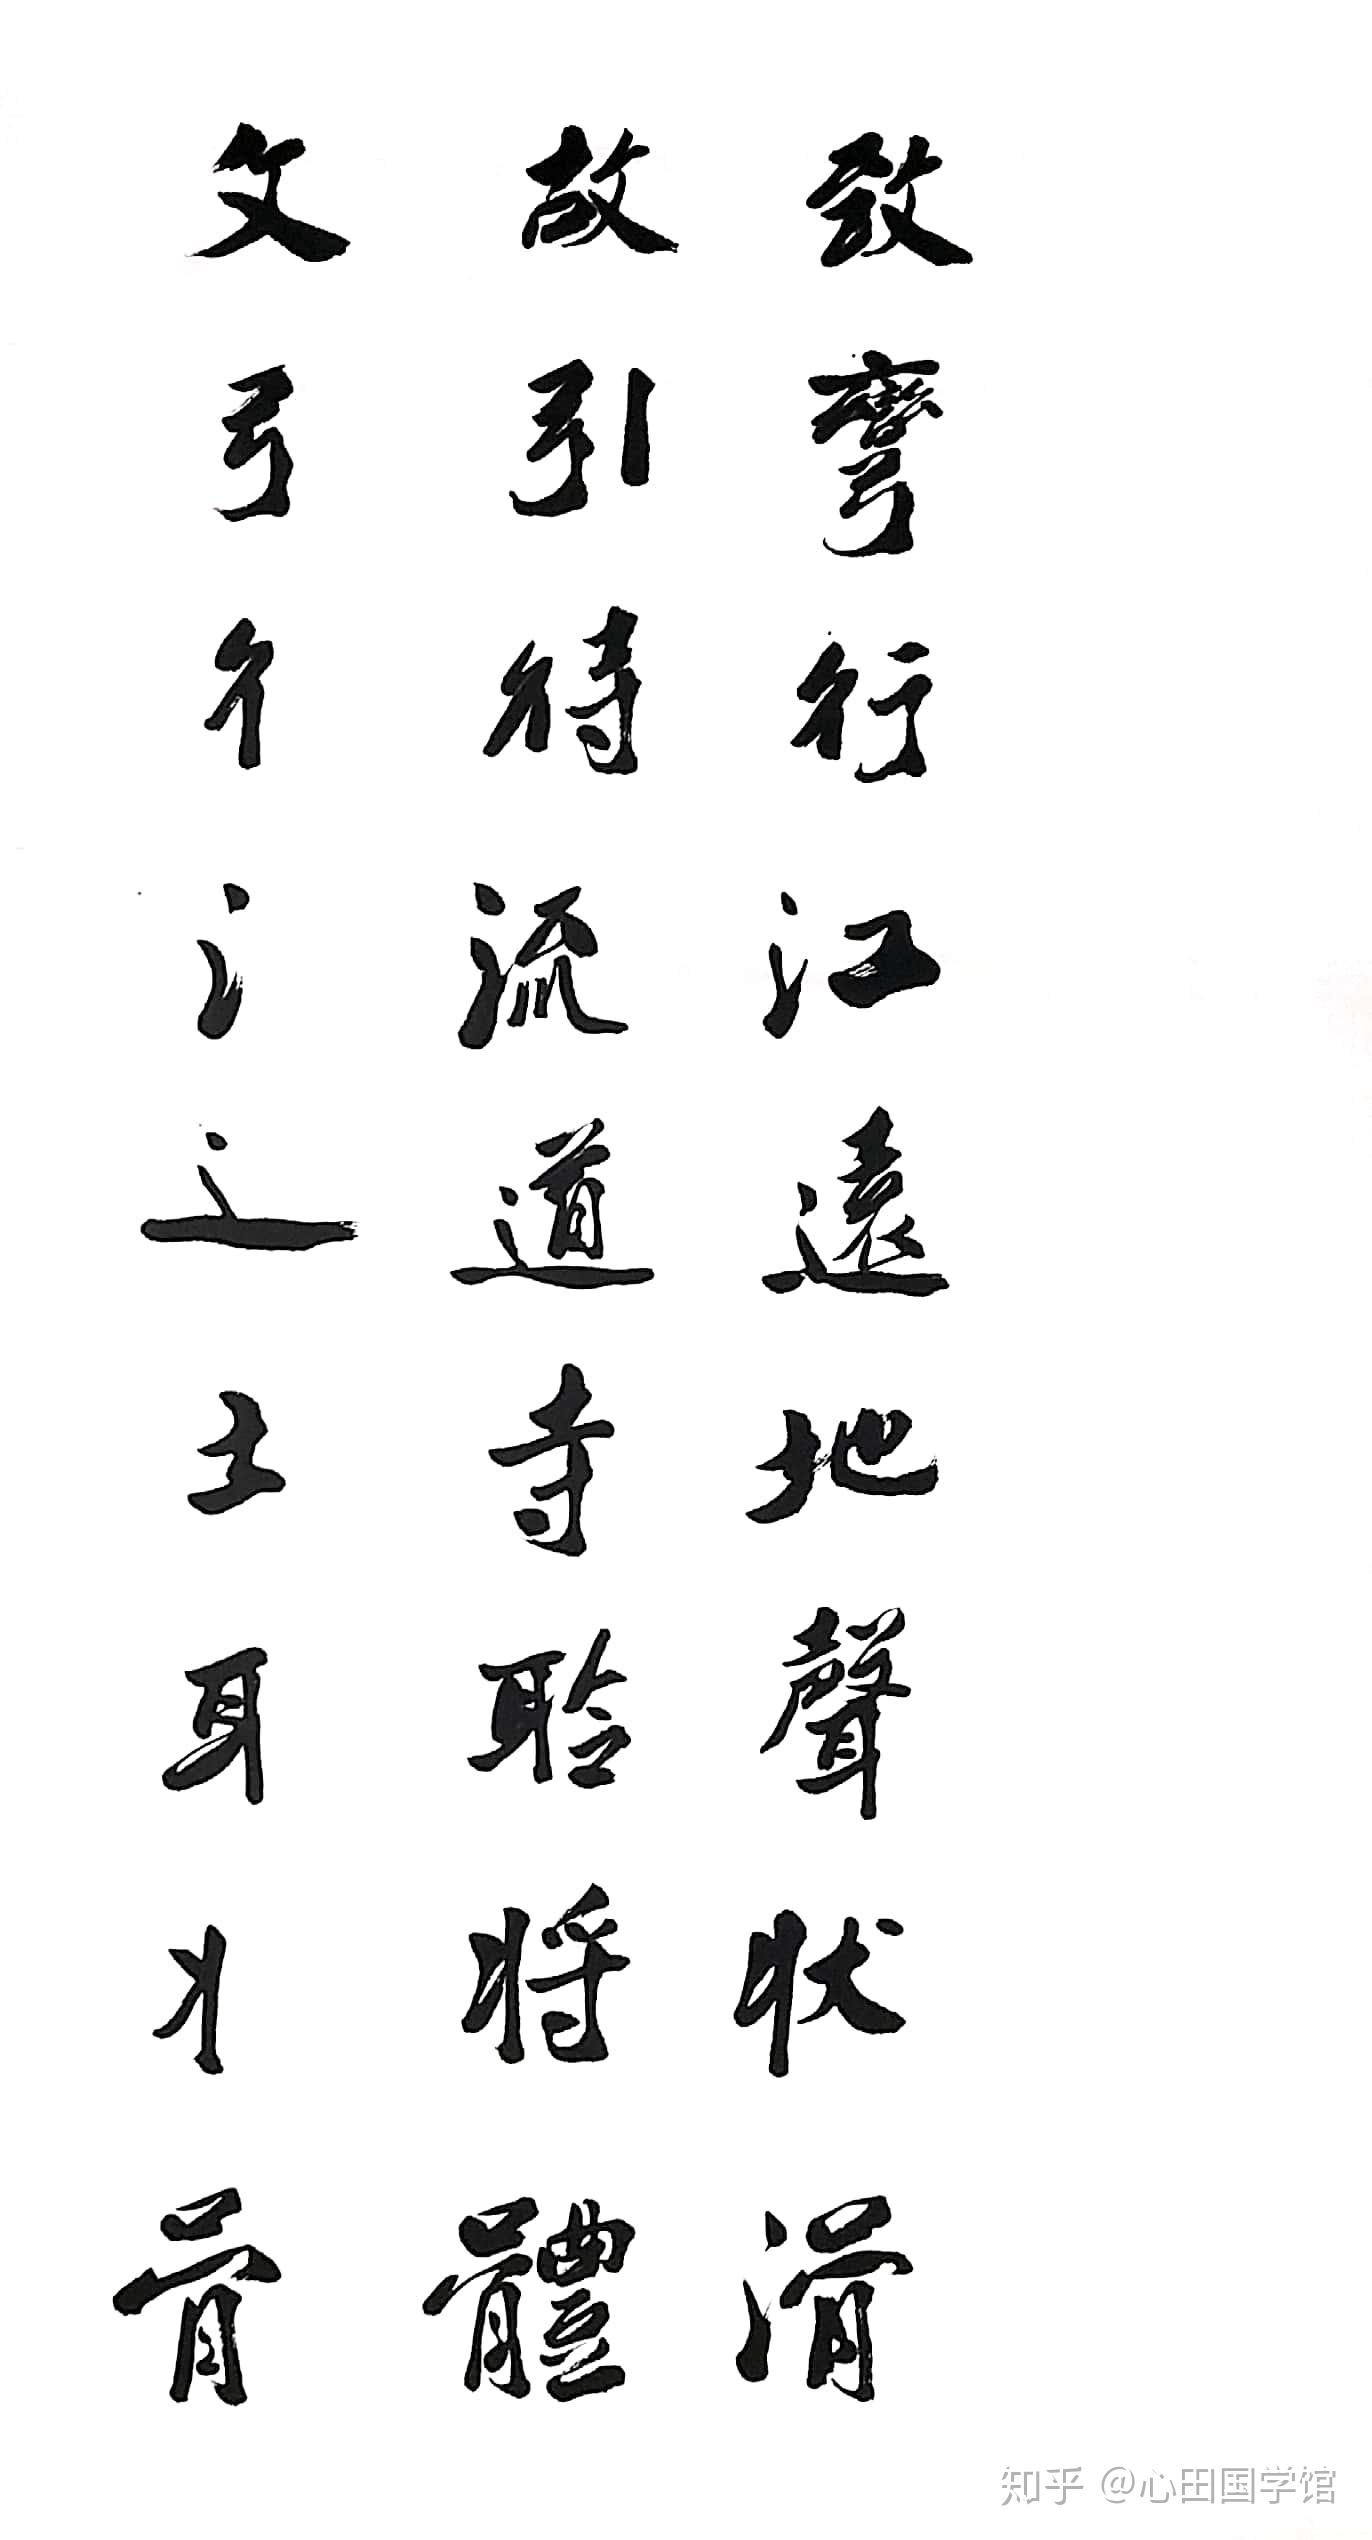 攵 故 致
弓 引 彎
彳 待 行
氵 流 江
辶 道 遠
土 寺 地
耳 聆 聲
丬 将 状
骨 體 滑
知乎 @心田国学馆